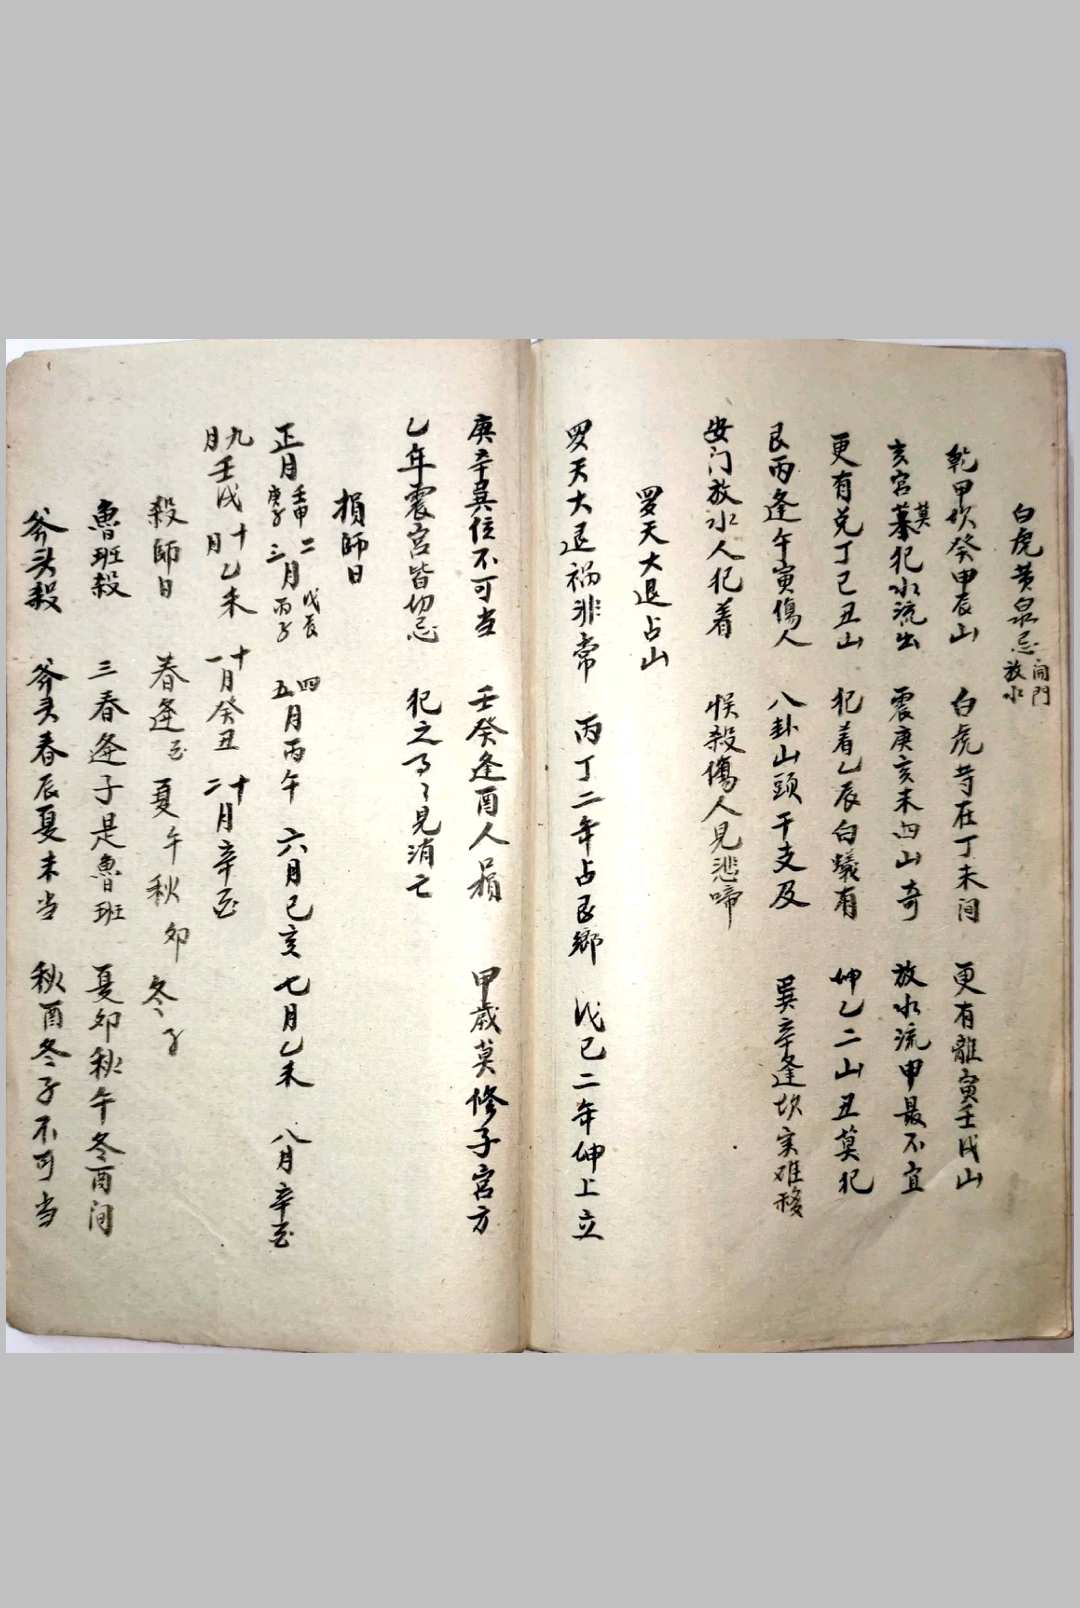 白虎黄泉忌 開門放水
乾甲坎癸申辰山 白虎在丁未间 更有離寅壬戌山
亥宮莫犯水流出 震庚亥未四山奇 放水流申最不宜
更有兑丁巳丑山 犯着乙辰白蟻有 坤乙二山丑莫犯
艮丙逢午寅傷人 八卦山頭干支及 巽辛逢坎实难移
安门放水人犯着 惧殺傷人見悲啼
罗天大退占山
罗天大退祸非常 丙丁二年占艮鄉 戊己二年坤上立
庚辛巽位不可当 壬癸逢酉人損 甲歳莫修子宮方
乙年震宮皆切忌 犯之見消亡
損師日
正月壬申庚子 二三月戊辰丙子 四五月丙午 六月己亥 七月乙未 八月辛亥
九月壬戌 十月乙未 十一月癸丑 十二月辛亥
殺師日 春逢亥 夏午 秋卯 冬子
魯班殺 三春逢子是魯班 夏卯秋午冬酉间
斧头殺 斧头春辰夏未当 秋酉冬子不可当